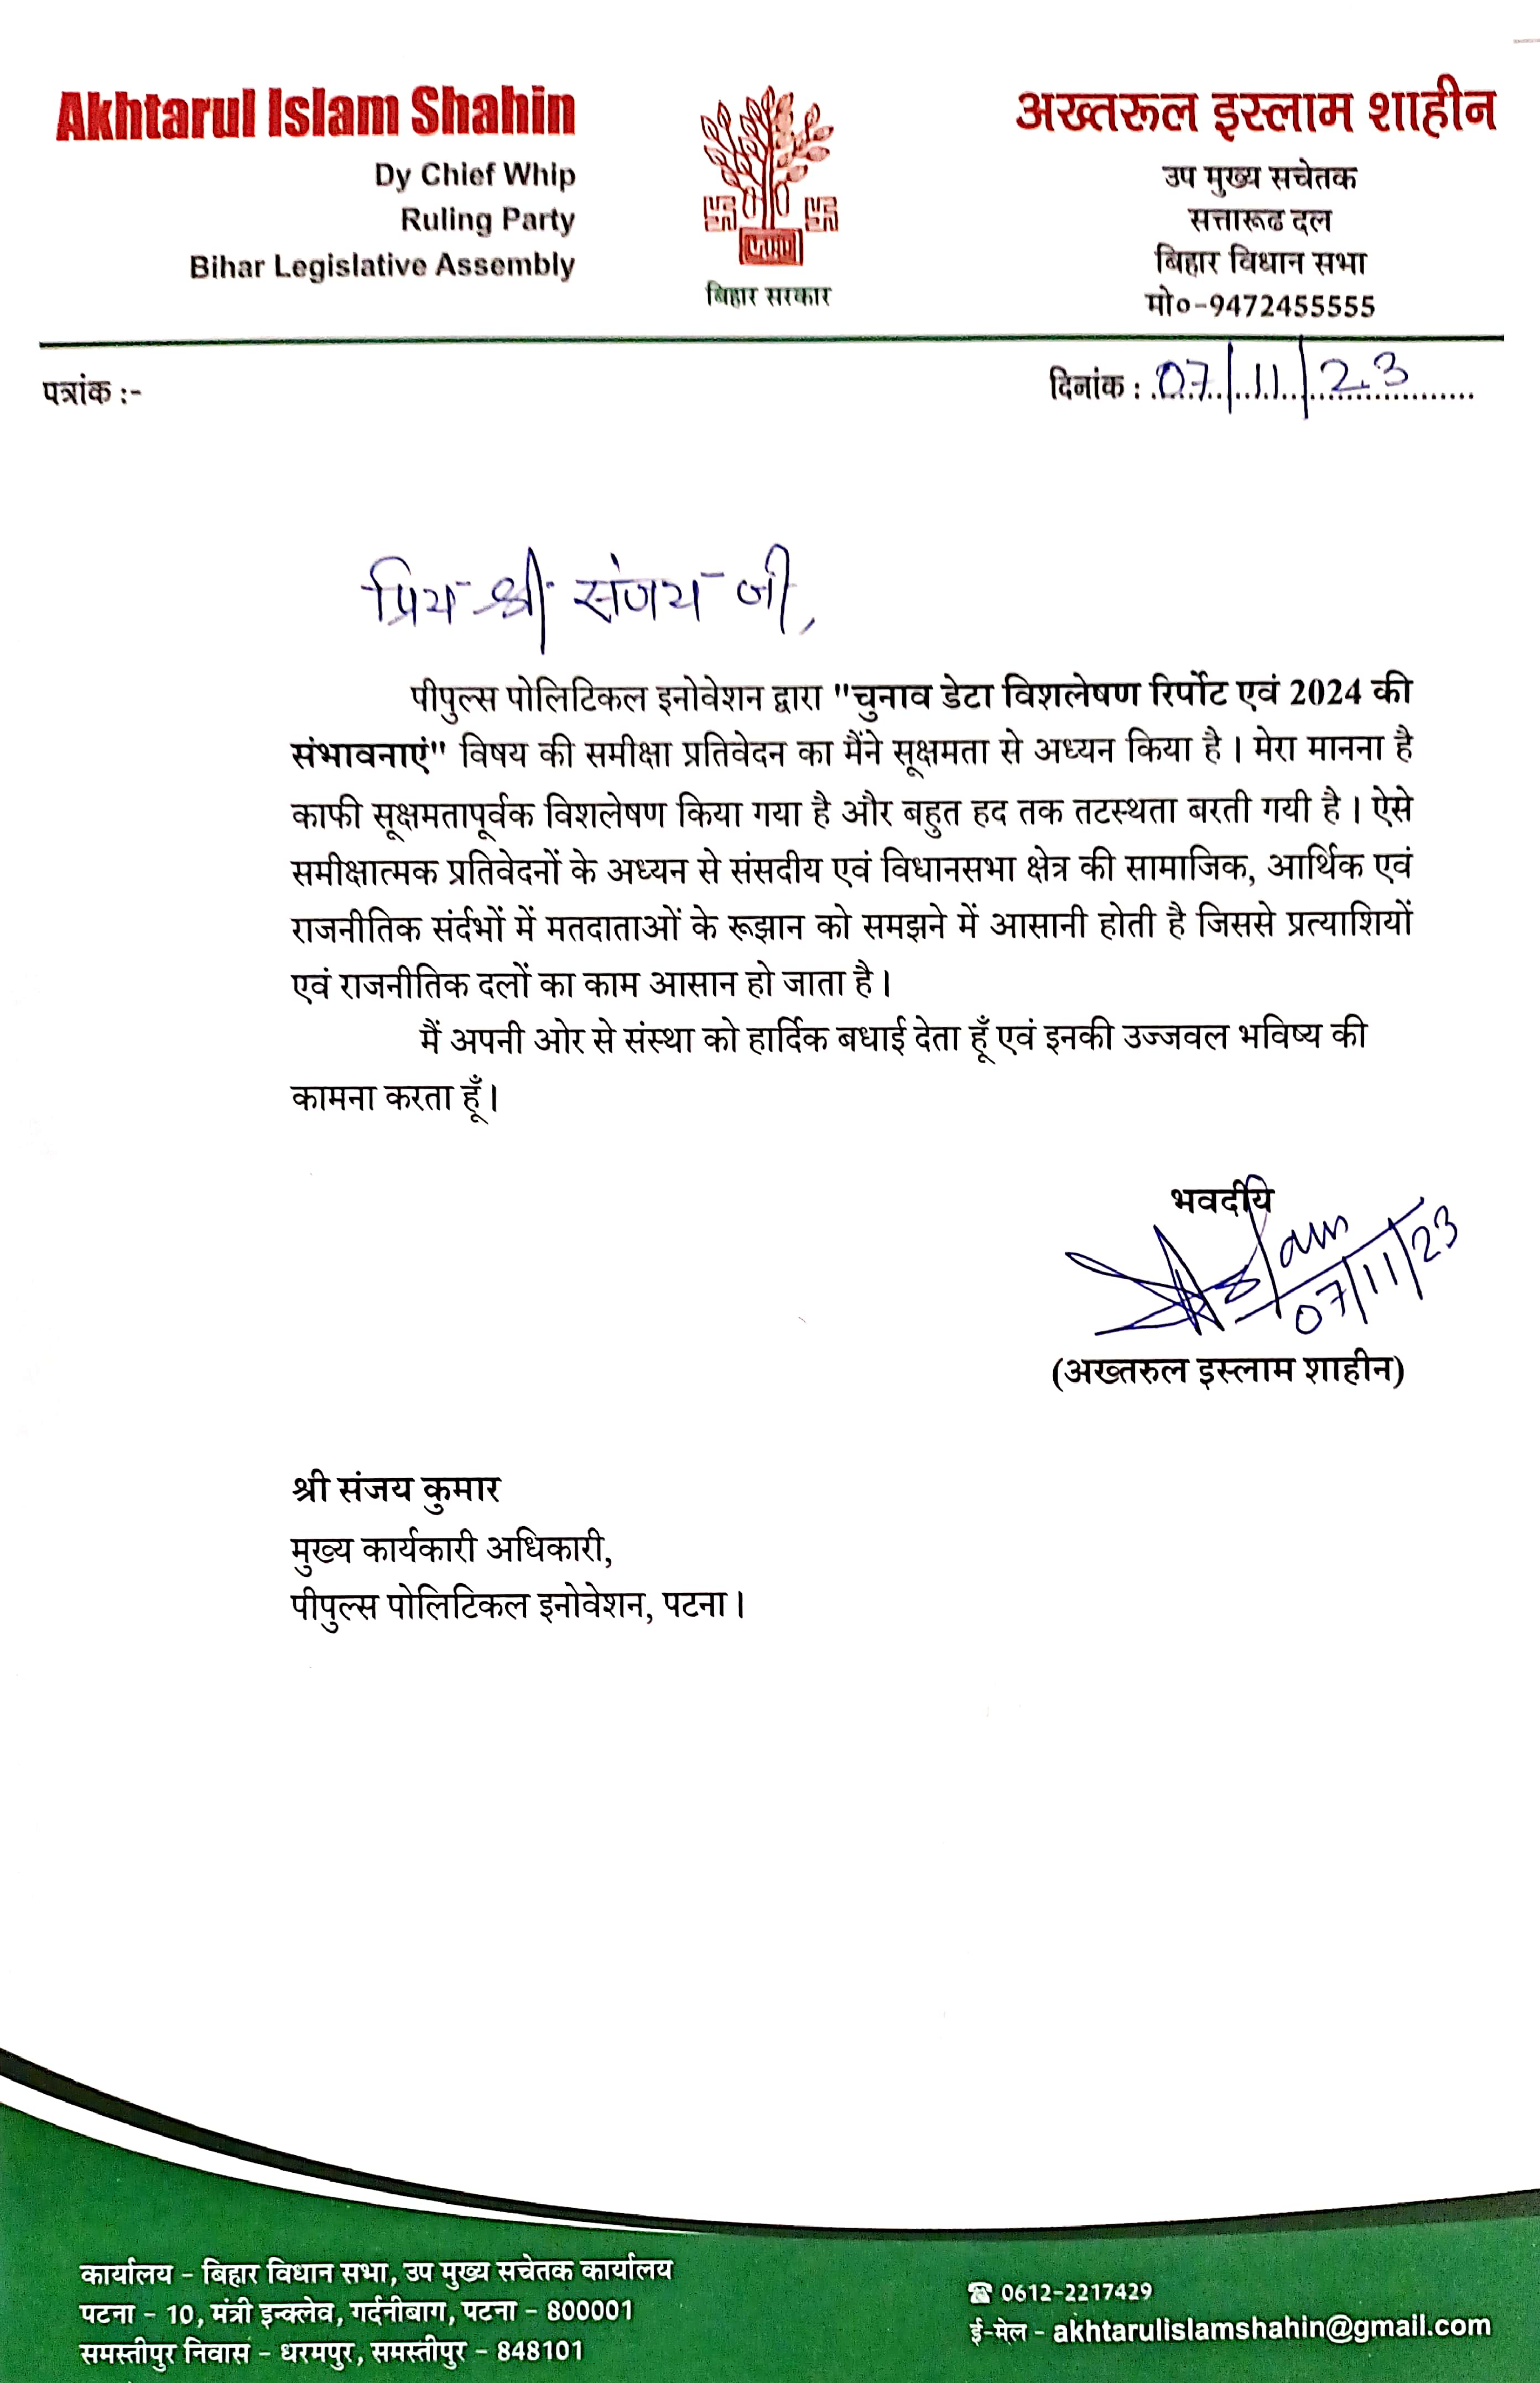 Akhtarul Islam Shahin
Dy Chief Whip
Ruling Party
Bihar Legislative Assembly
बिहार सरकार
अख्तरूल इस्लाम शाहीन
उप मुख्य सचेतक
सत्तारूढ दल
बिहार विधान सभा
मो०-9472455555
पत्रांक :-
दिनांक : 07/11/23
प्रिय श्री संजय जी,
पीपुल्स पोलिटिकल इनोवेशन द्वारा "चुनाव डेटा विशलेषण रिर्पोट एवं 2024 की
संभावनाएं" विषय की समीक्षा प्रतिवेदन का मैंने सूक्षमता से अध्यन किया है । मेरा मानना है
काफी सूक्षमतापूर्वक विशलेषण किया गया है और बहुत हद तक तटस्थता बरती गयी है । ऐसे
समीक्षात्मक प्रतिवेदनों के अध्यन से संसदीय एवं विधानसभा क्षेत्र की सामाजिक, आर्थिक एवं
राजनीतिक संर्दभों में मतदाताओं के रूझान को समझने में आसानी होती है जिससे प्रत्याशियों
एवं राजनीतिक दलों का काम आसान हो जाता है ।
मैं अपनी ओर से संस्था को हार्दिक बधाई देता हूँ एवं इनकी उज्जवल भविष्य की
कामना करता हूँ ।
भवदीय
Islam
07/11/23
(अख्तरुल इस्लाम शाहीन)
श्री संजय कुमार
मुख्य कार्यकारी अधिकारी,
पीपुल्स पोलिटिकल इनोवेशन, पटना ।
कार्यालय - बिहार विधान सभा, उप मुख्य सचेतक कार्यालय
पटना - 10, मंत्री इन्क्लेव, गर्दनीबाग, पटना - 800001
समस्तीपुर निवास - धरमपुर, समस्तीपुर - 848101
☎ 0612-2217429
ई-मेल - akhtarulislamshahin@gmail.com